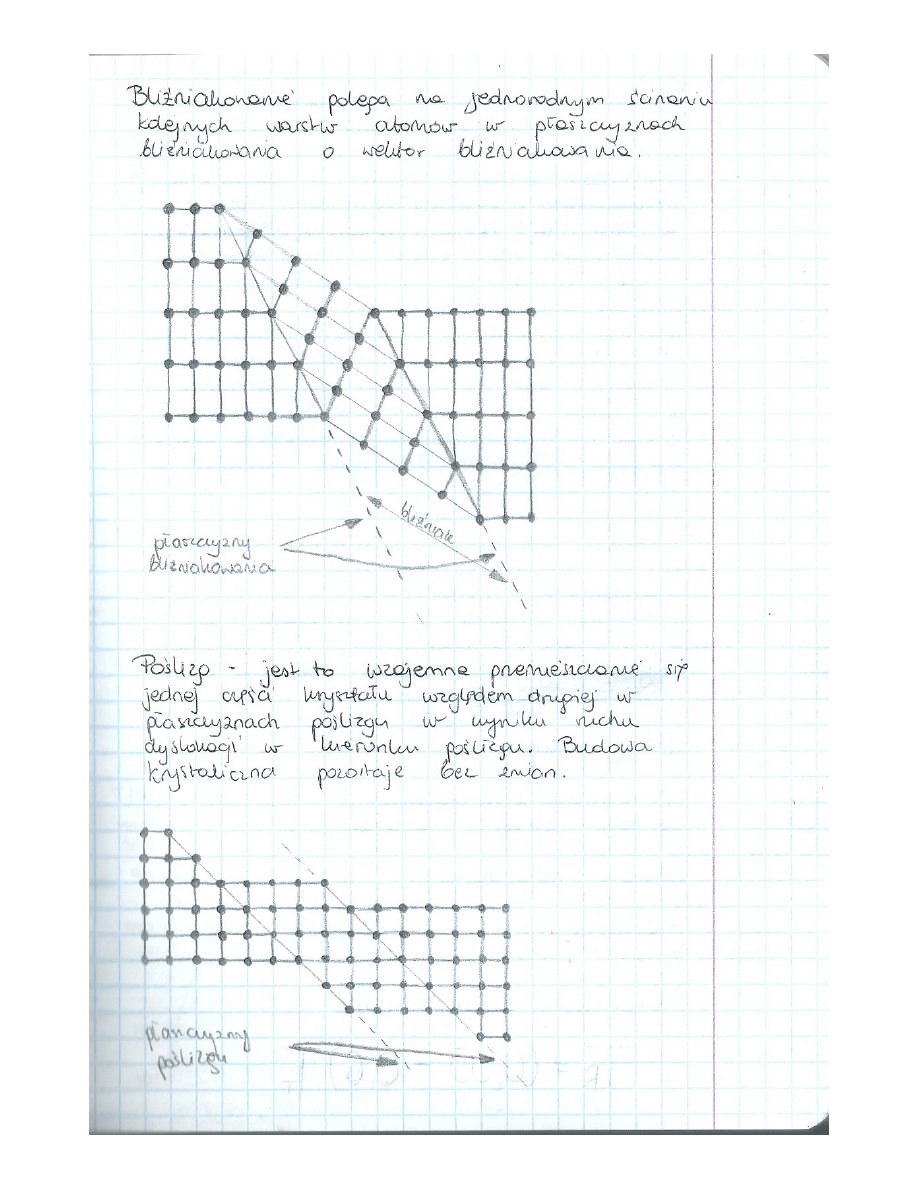 Bliźniakowanie polega na jednorodnym ścinaniu
kolejnych warstw atomów w płaszczyznach
bliźniakowania o wektor bliźniakowania.
bliźniak
płaszczyzny
bliźniakowania
Poślizg - jest to wzajemne przemieszczanie się
jednej części kryształu względem drugiej w
płaszczyznach poślizgu w wyniku ruchu
dyslokacji w kierunku poślizgu. Budowa
krystaliczna pozostaje bez zmian.
płaszczyzny
poślizgu